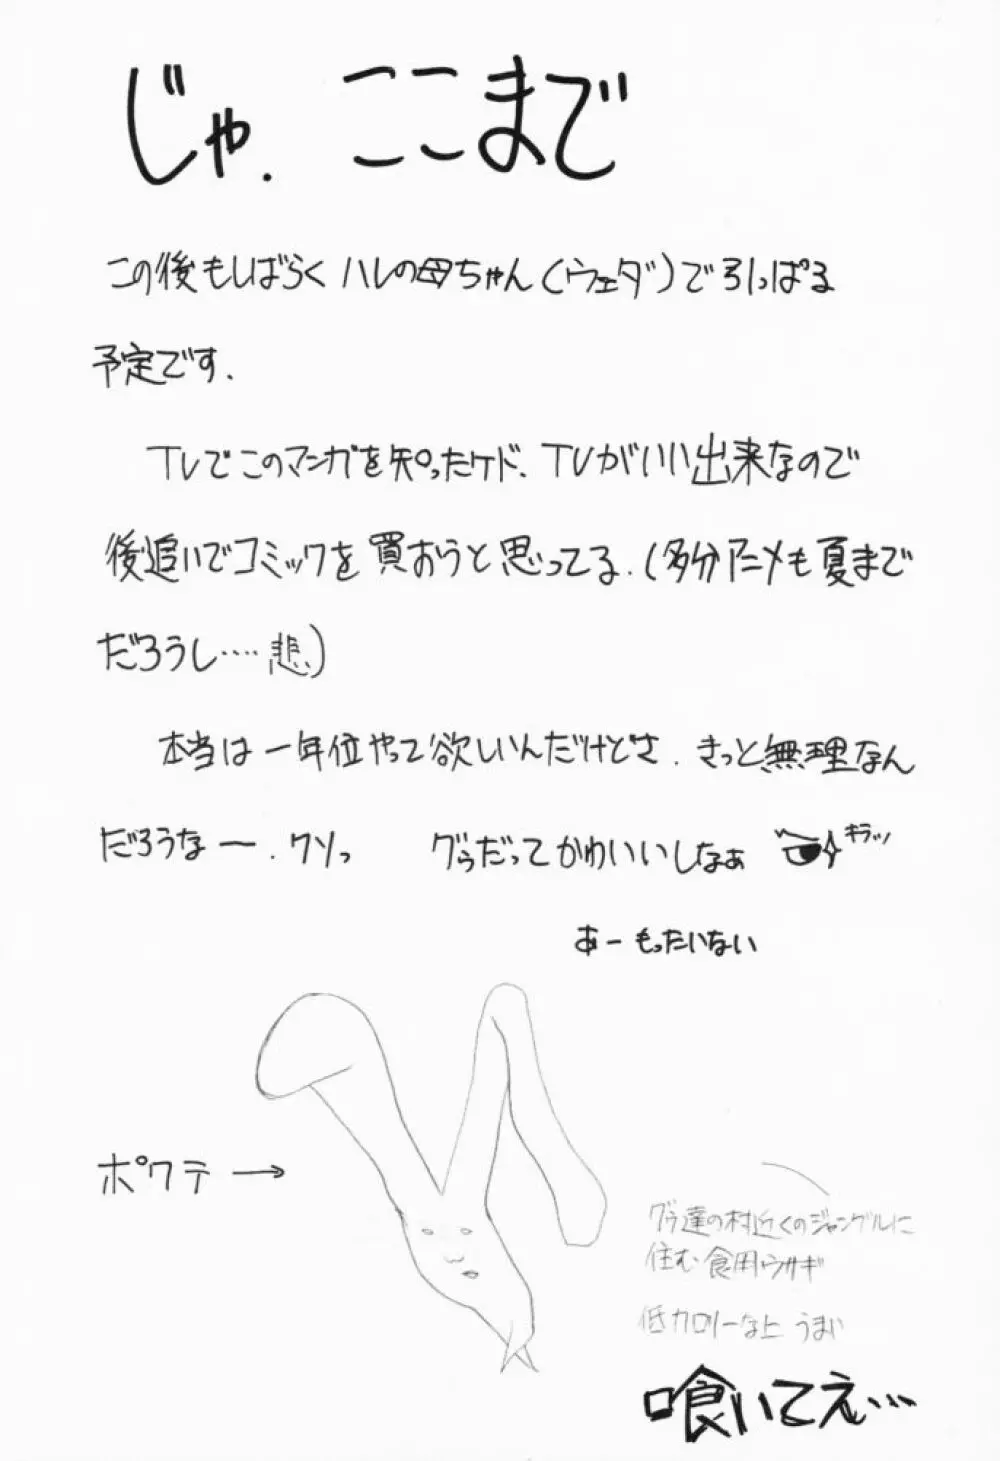 じゃ. ここまで
この後もしばらくハレの母ちゃん(ウェダ)で引っぱる
予定です.
TVでこのマンガを知ったケド、TVがいい出来なので
後追いでコミックを買おうと思ってる.(多分アニメも夏まで
だろうし‥‥悲)
本当は一年位やって欲しいんだけどさ. きっと無理なん
だろうなー. クソっ グゥだってかわいいしなぁ キラッ
あーもったいない
ポクテ→
グゥ達の村近くのジャングルに
住む食用ウサギ
低カロリーな上 うまい
喰いてえ…